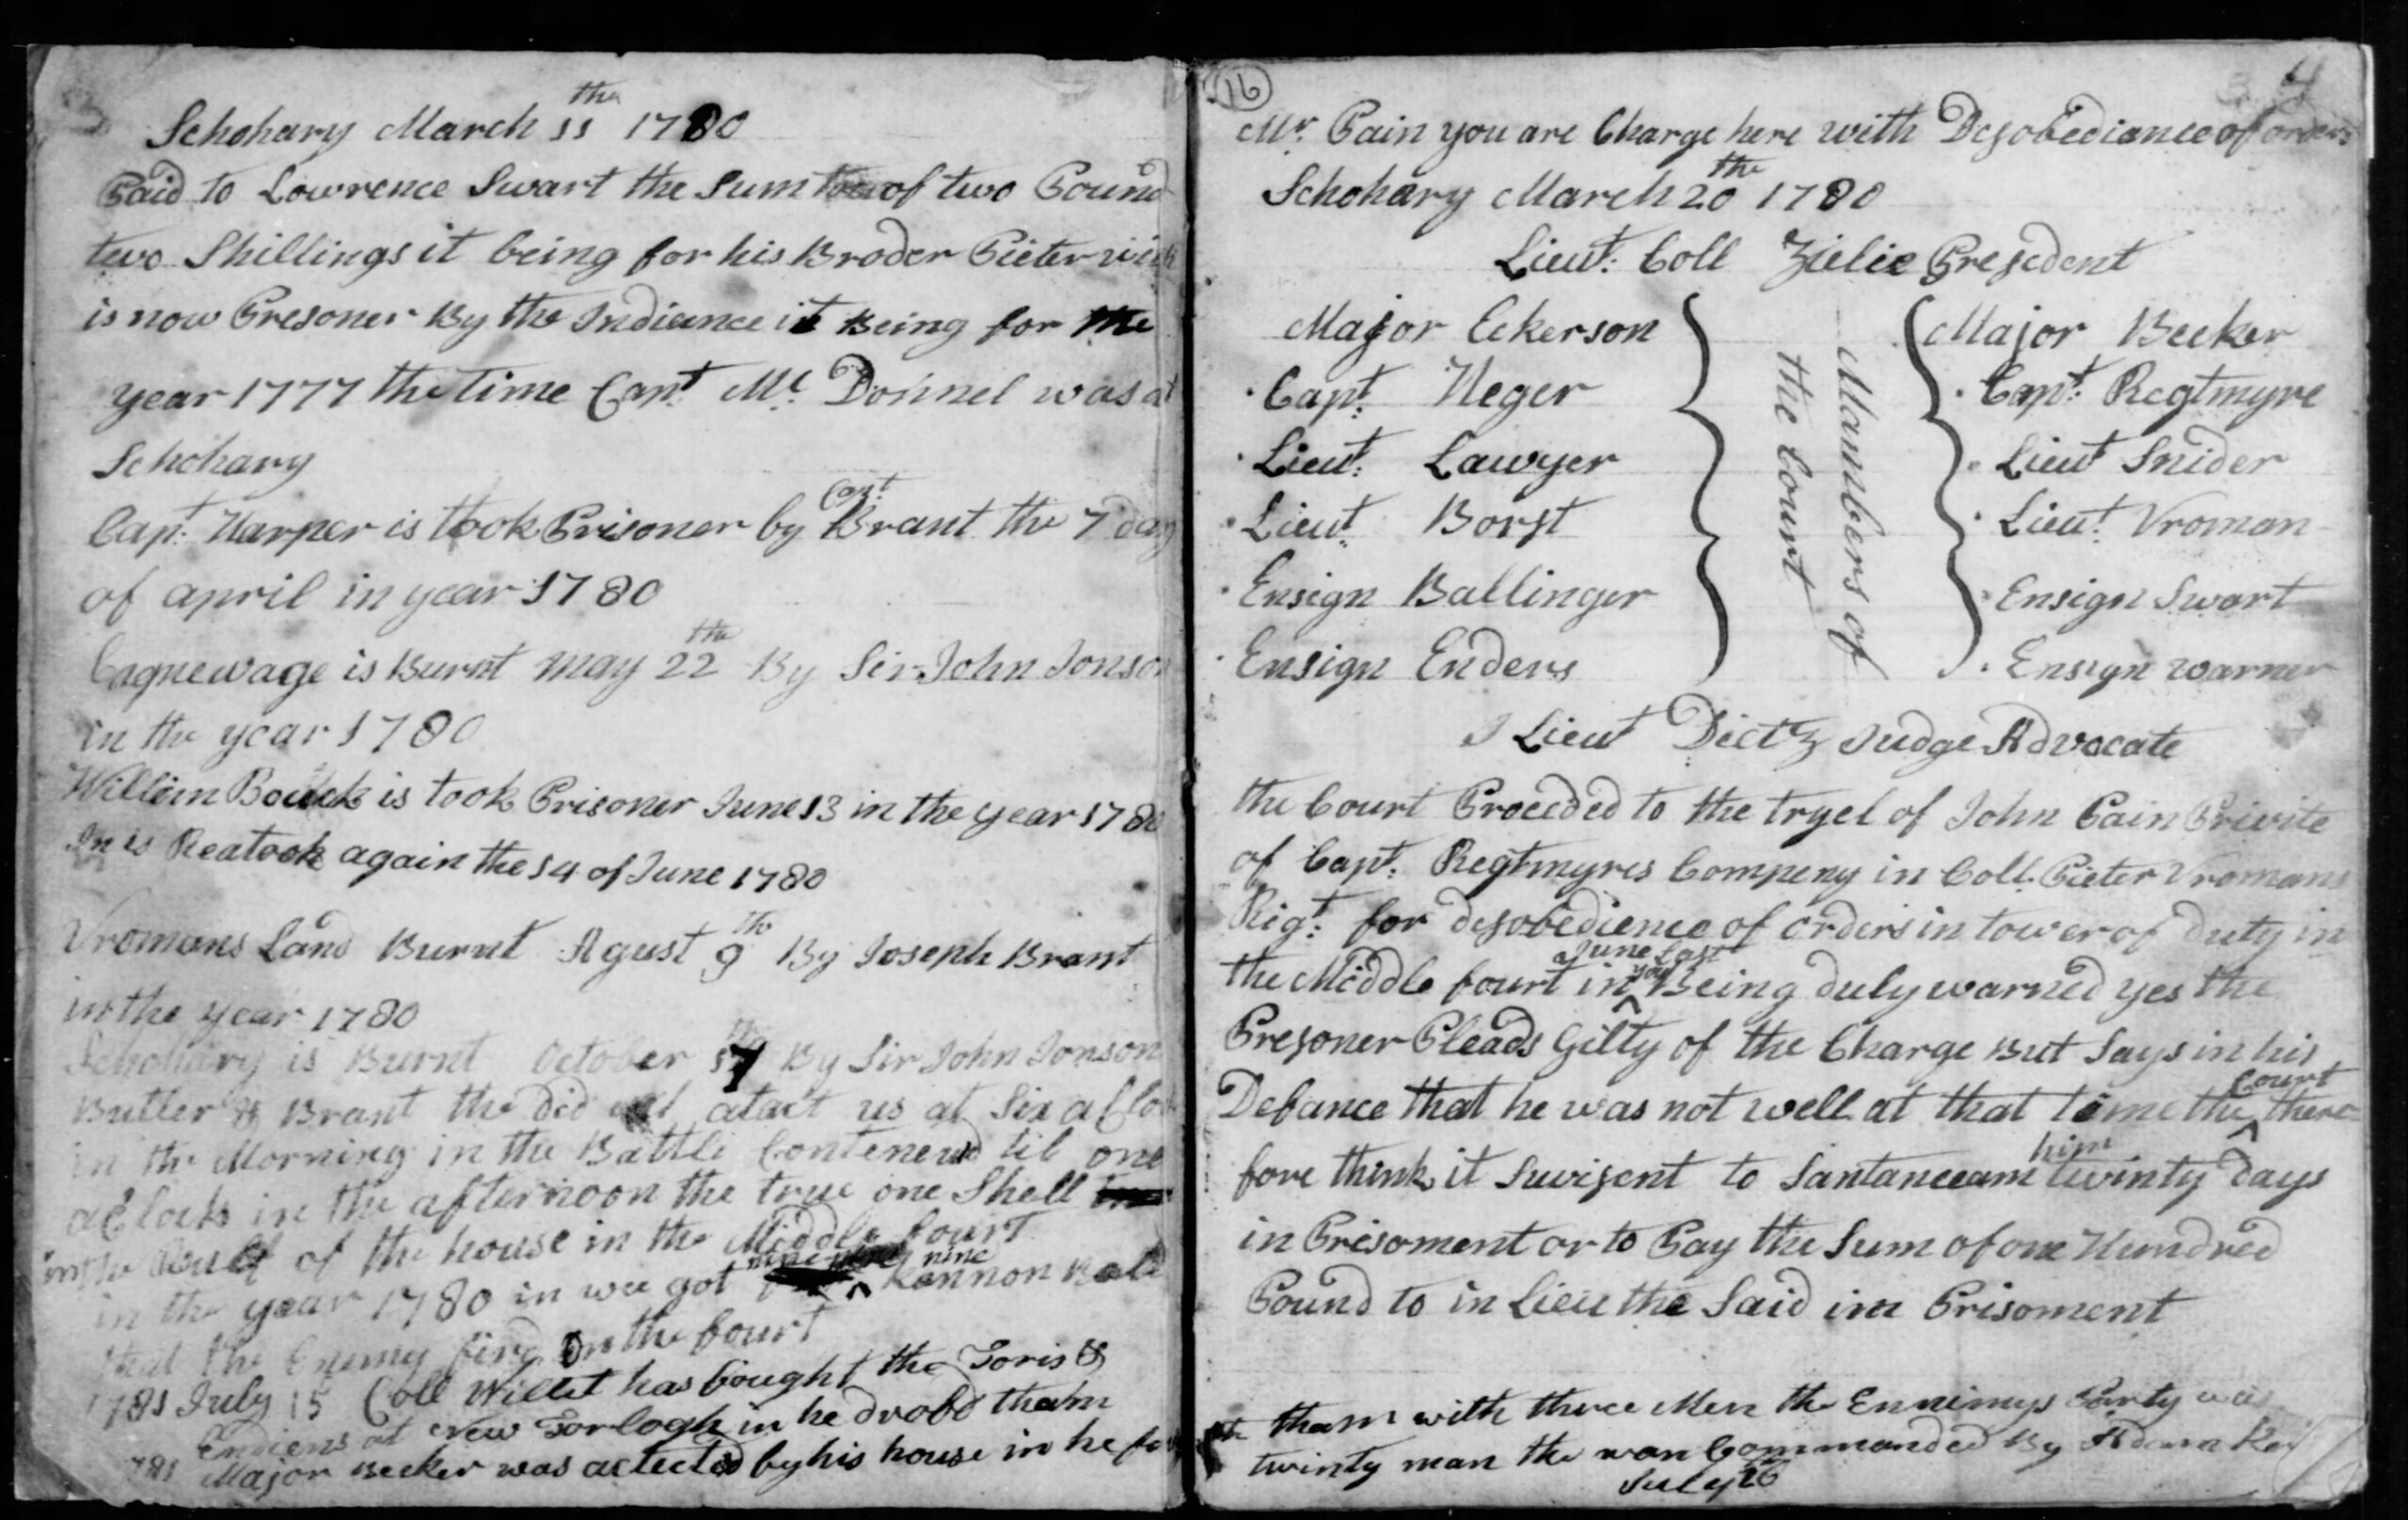 Schohary March 11 the 1780
Paid to Lowrence Swart the Sum of two Pound
two Shillings it being for his Broder Pieter
is now Presoner By the Indience it Being for the
year 1777 the time Capt Mc Donnel was at
Schohary
Capt: Harper is took Prisoner by Capt: Brant the 7 day
of april in year 1780
Cagnewage is Burnt may 22 the By Sir John Jonson
in the year 1780
William Bouck is took Prisoner June 13 in the year 1780
In is Reatook again the 14 of June 1780
Vromans Land Burnt Agust 9 th By Joseph Brant
in the year 1780
Schohary is Burnt October 17 th By Sir John Jonson
Butler & Brant the did atact us at Six a Clo
in the Morning in the Battle Contenewd til one
a Clock in the afternoon the true one Shell
in the of the house in the Middle fourt
in the year 1780 in wee got nine Kannon Ball
that the Enemy fird on the fourt
1781 July 15 Coll Willet has fought the Toris &
Endiens at New Torlogh in he drobd tham
1781 Major Becker was actected by his house in he
16
4
Mr. Pain you are Charge here with Desobediance of orders
Schohary March 20 the 1780
Lieut: Coll Zielie Presedent
Major Eckerson
Capt: Heger
Lieut: Lawyer
Lieut: Borst
Ensign Ballinger
Ensign Enders
Mambers of
the Court
Major Becker
Capt: Regtmyre
Lieut Snider
Lieut: Vroman
Ensign Swart
Ensign warner
Lieut Dietz Judge Advocate
the Court Proceded to the tryel of John Pain Privite
of Capt: Regtmyres Compeny in Coll. Pieter Vromans
Rigt: for desobedience of orders in tower of duty in
the Middle fourt in June Last you Being duly warned yes the
Presoner Pleads Gilty of the Charge But Says in his
Defance that he was not well at that time the Court there=
fore think it Suvisent to Santanceam him twinty days
in Prisoment or to Pay the Sum of one Hundred
Pound to in Lieu the Said im Prisoment
tham with three Men the Ennimys Party was
twinty man the wan Commanded By Adam
July 26